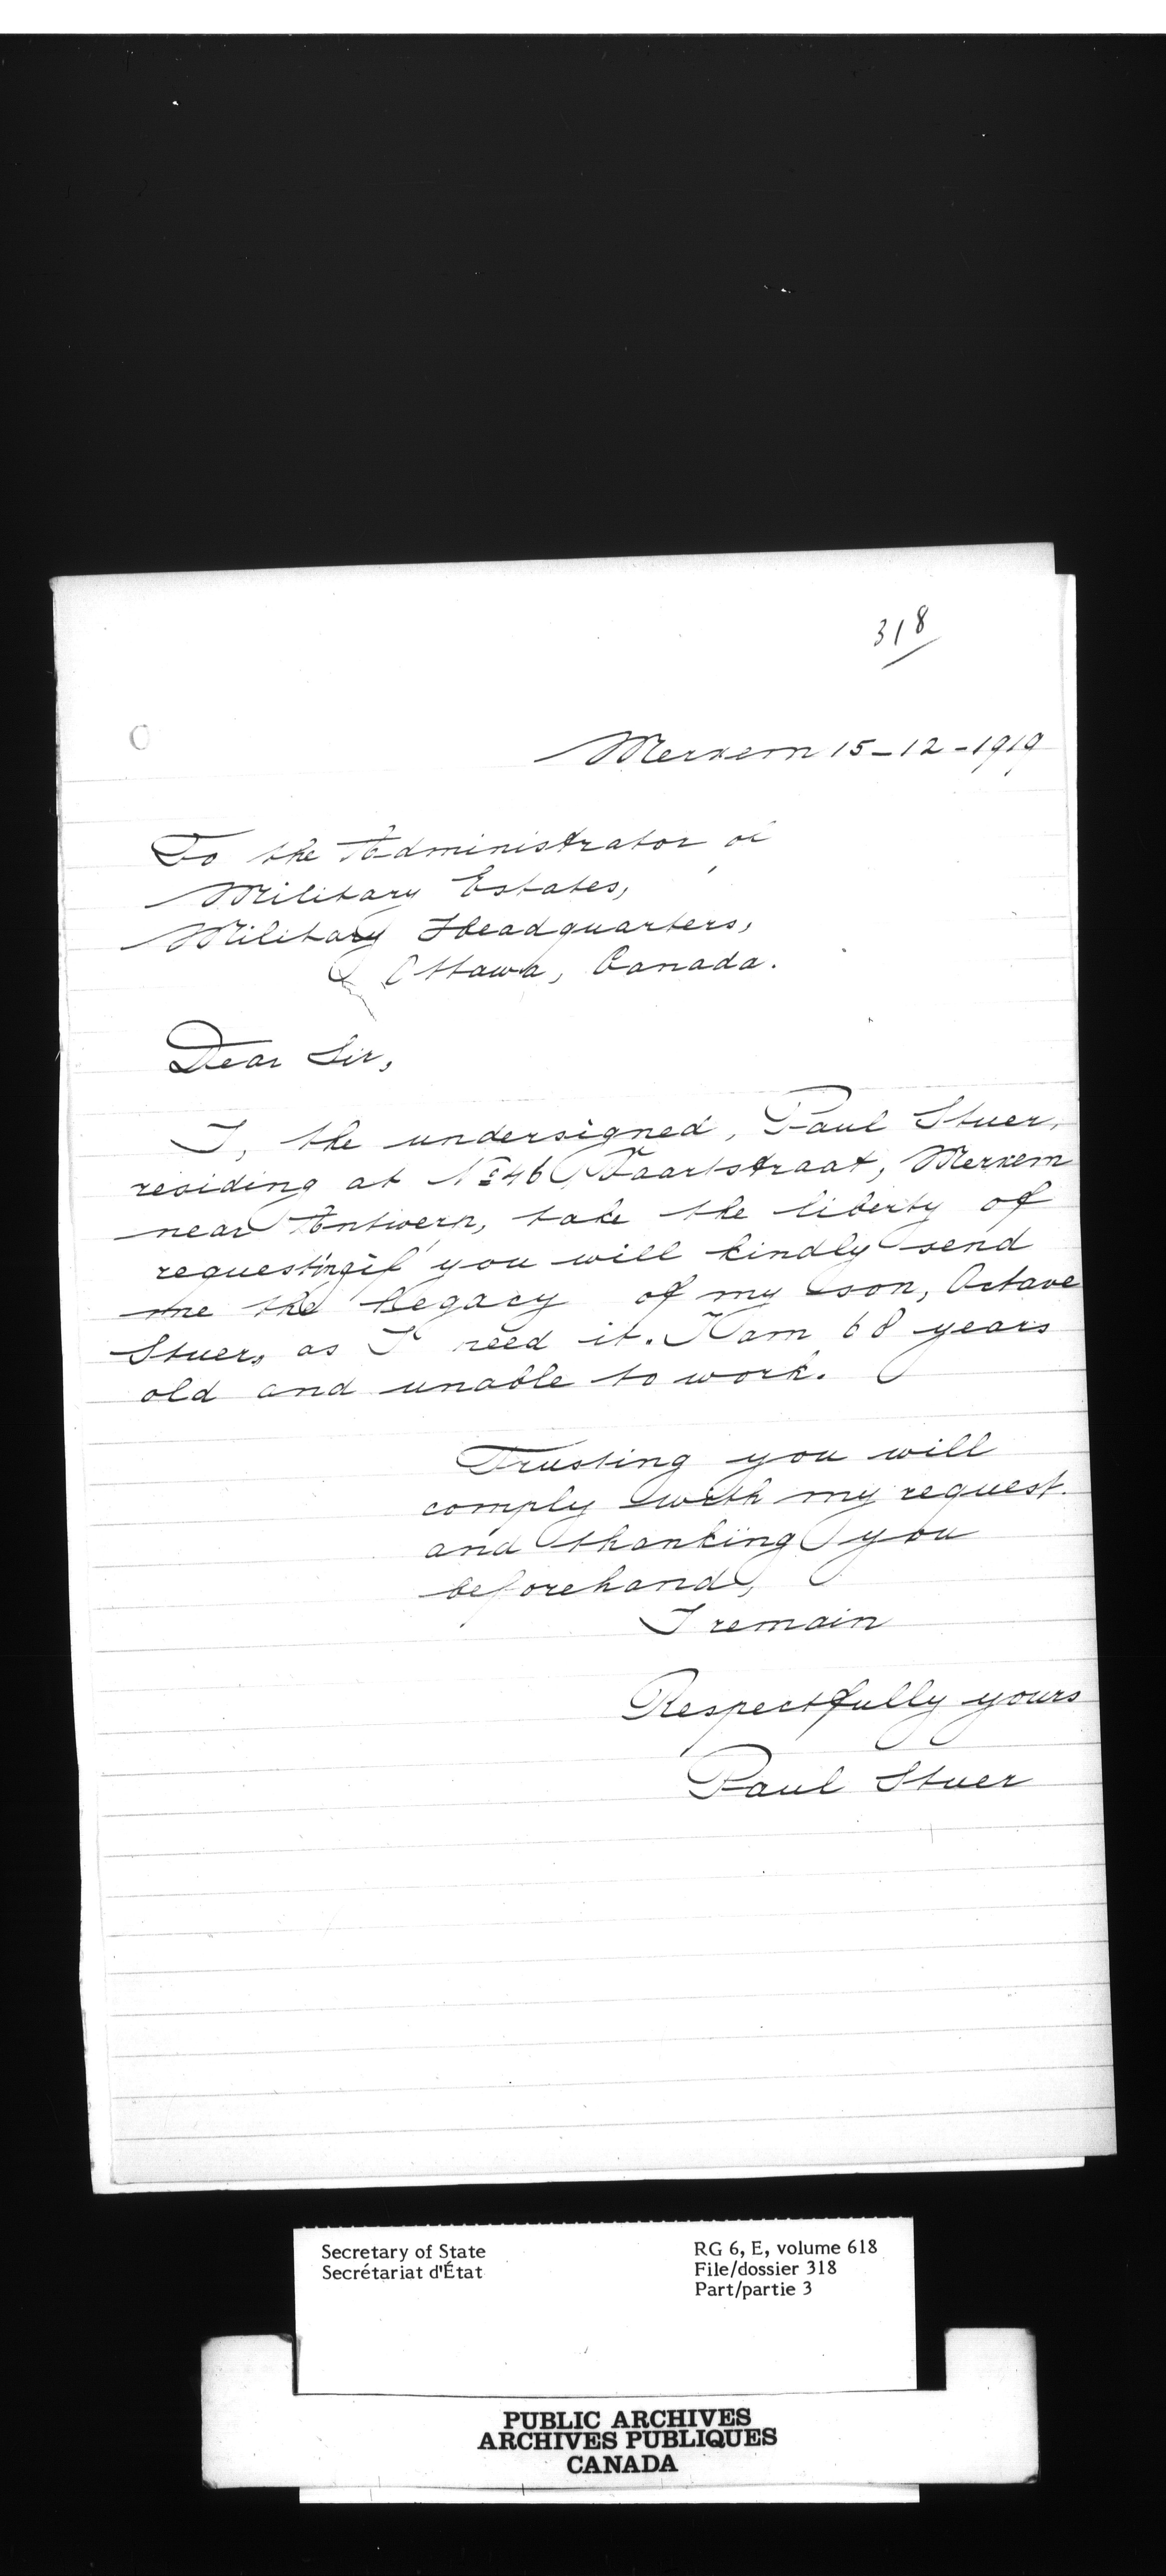 318
Merxem 15-12-1919
To the Administrator of
Military Estates,
Military Headquarters,
Ottawa, Canada.
Dear Sir,
I, the undersigned, Paul Stuer,
residing at No 46 Vaartstraat, Merxem
near Antwerp, take the liberty of
requesting if you will kindly send
me the legacy of my son, Octave
Stuer, as I need it. I am 68 years
old and unable to work.
Trusting you will
comply with my request.
and thanking you
beforehand,
I remain
Respectfully yours
Paul Stuer
Secretary of State
Secrétariat d'État
RG 6, E, volume 618
File/dossier 318
Part/partie 3
PUBLIC ARCHIVES
ARCHIVES PUBLIQUES
CANADA